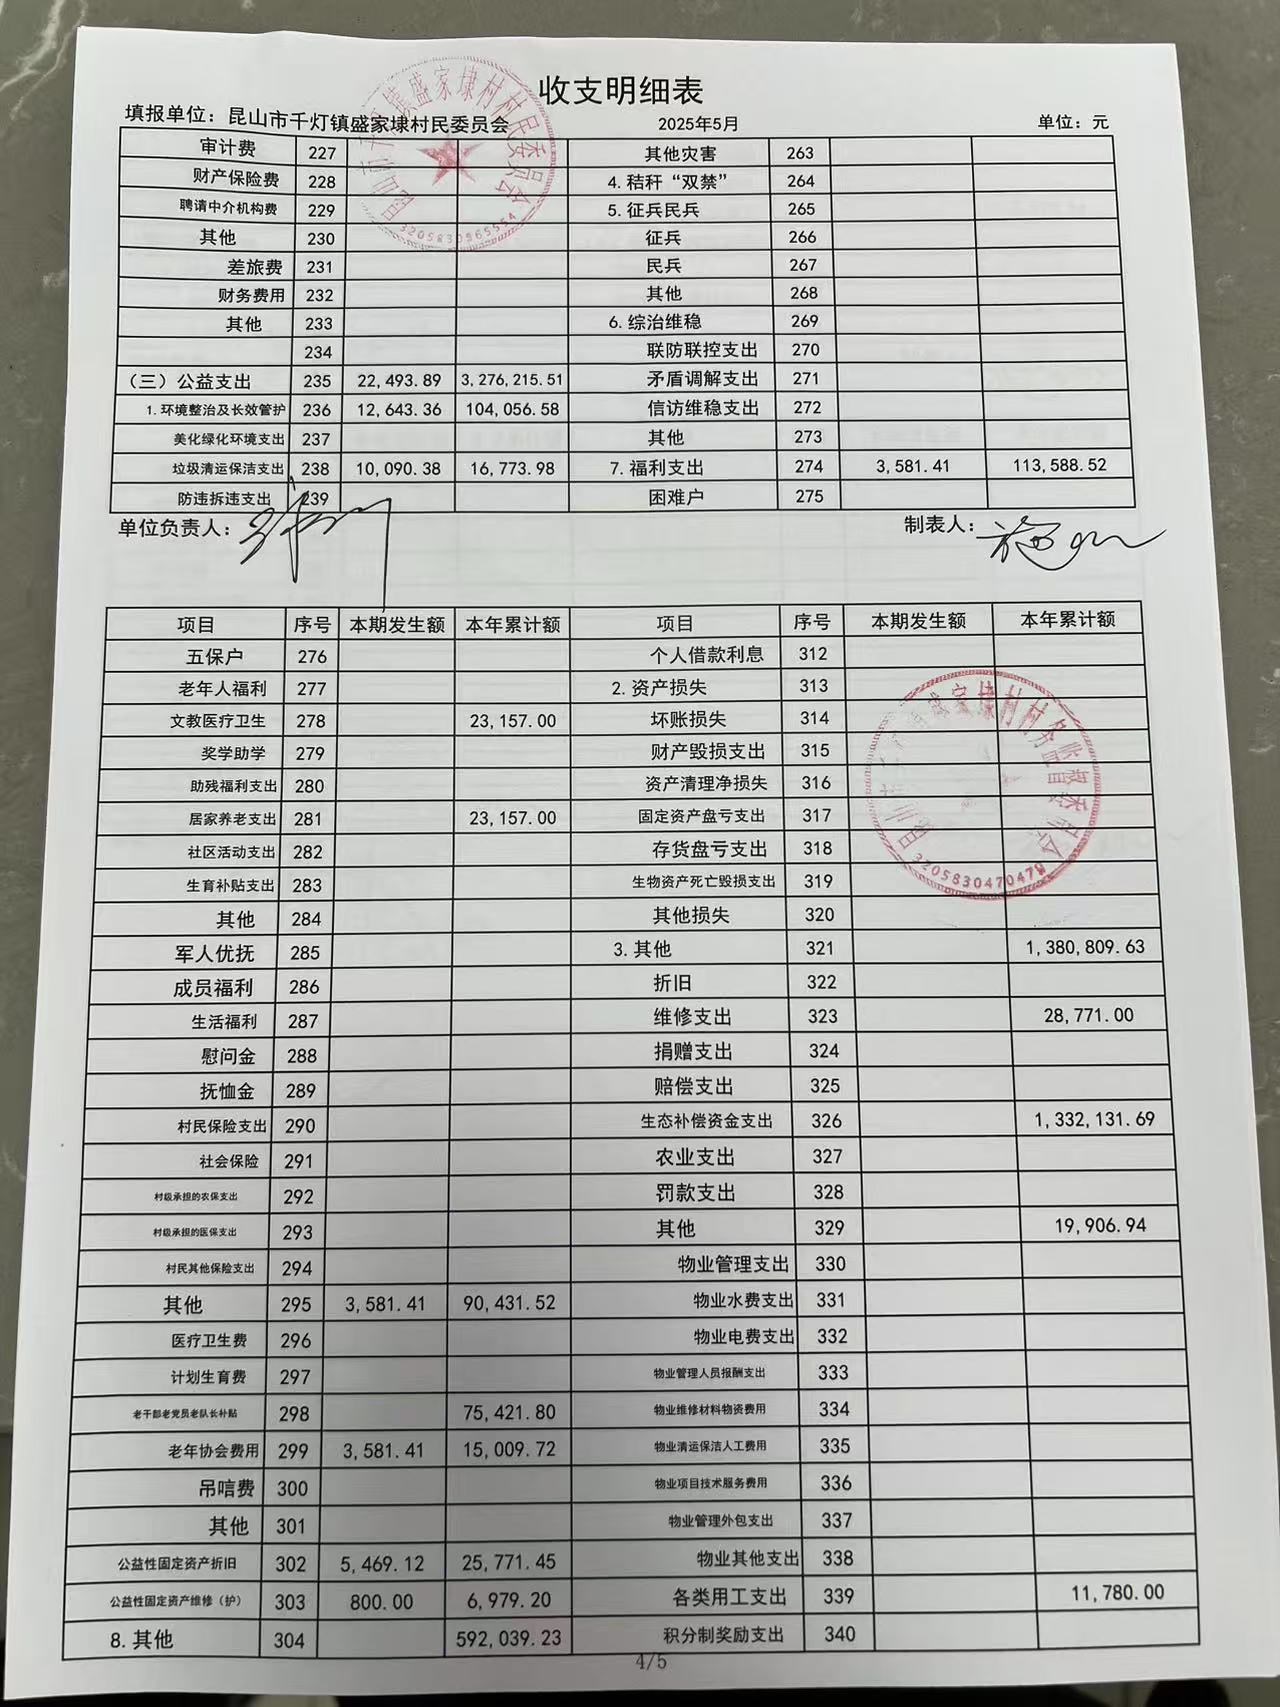 收支明细表
填报单位：昆山市千灯镇盛家埭村民委员会 2025年5月 单位：元
审计费 227 其他灾害 263
财产保险费 228 4.秸秆“双禁” 264
聘请中介机构费 229 5.征兵民兵 265
其他 230 征兵 266
差旅费 231 民兵 267
财务费用 232 其他 268
其他 233 6.综治维稳 269
234 联防联控支出 270
（三）公益支出 235 22,493.89 3,276,215.51 矛盾调解支出 271
1.环境整治及长效管护 236 12,643.36 104,056.58 信访维稳支出 272
美化绿化环境支出 237 其他 273
垃圾清运保洁支出 238 10,090.38 16,773.98 7.福利支出 274 3,581.41 113,588.52
防违拆违支出 239 困难户 275
单位负责人： 制表人：
项目 序号 本期发生额 本年累计额 项目 序号 本期发生额 本年累计额
五保户 276 个人借款利息 312
老年人福利 277 2.资产损失 313
文教医疗卫生 278 23,157.00 坏账损失 314
奖学助学 279 财产毁损支出 315
助残福利支出 280 资产清理净损失 316
居家养老支出 281 23,157.00 固定资产盘亏支出 317
社区活动支出 282 存货盘亏支出 318
生育补贴支出 283 生物资产死亡毁损支出 319
其他 284 其他损失 320
军人优抚 285 3.其他 321 1,380,809.63
成员福利 286 折旧 322
生活福利 287 维修支出 323 28,771.00
慰问金 288 捐赠支出 324
抚恤金 289 赔偿支出 325
村民保险支出 290 生态补偿资金支出 326 1,332,131.69
社会保险 291 农业支出 327
村级承担的农保支出 292 罚款支出 328
村级承担的医保支出 293 其他 329 19,906.94
村民其他保险支出 294 物业管理支出 330
其他 295 3,581.41 90,431.52 物业水费支出 331
医疗卫生费 296 物业电费支出 332
计划生育费 297 物业管理人员报酬支出 333
老干部老党员老队长补贴 298 75,421.80 物业维修材料物资费用 334
老年协会费用 299 3,581.41 15,009.72 物业清运保洁人工费用 335
吊唁费 300 物业项目技术服务费用 336
其他 301 物业管理外包支出 337
公益性固定资产折旧 302 5,469.12 25,771.45 物业其他支出 338
公益性固定资产维修（护） 303 800.00 6,979.20 各类用工支出 339 11,780.00
8.其他 304 592,039.23 积分制奖励支出 340
4/5
昆山市千灯镇盛家埭村村民委员会
3205830565554
盛家埭村村务监督委员会
3205830470479